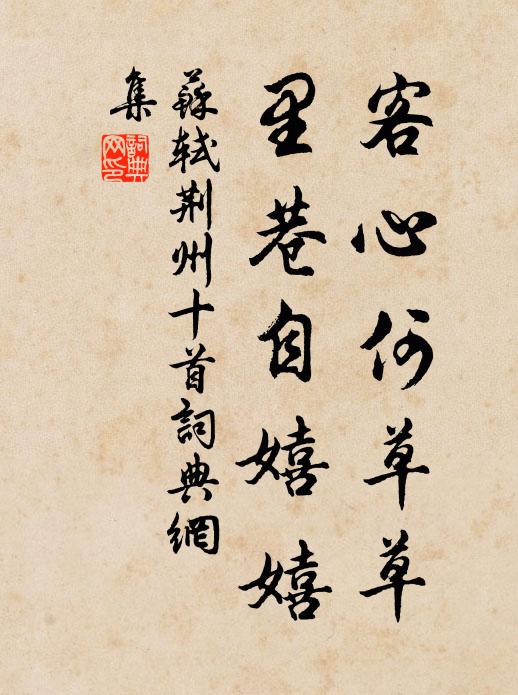 客心何草草
里巷自嬉嬉
蘇軾荆州十首詞典網
集
詞典
网印